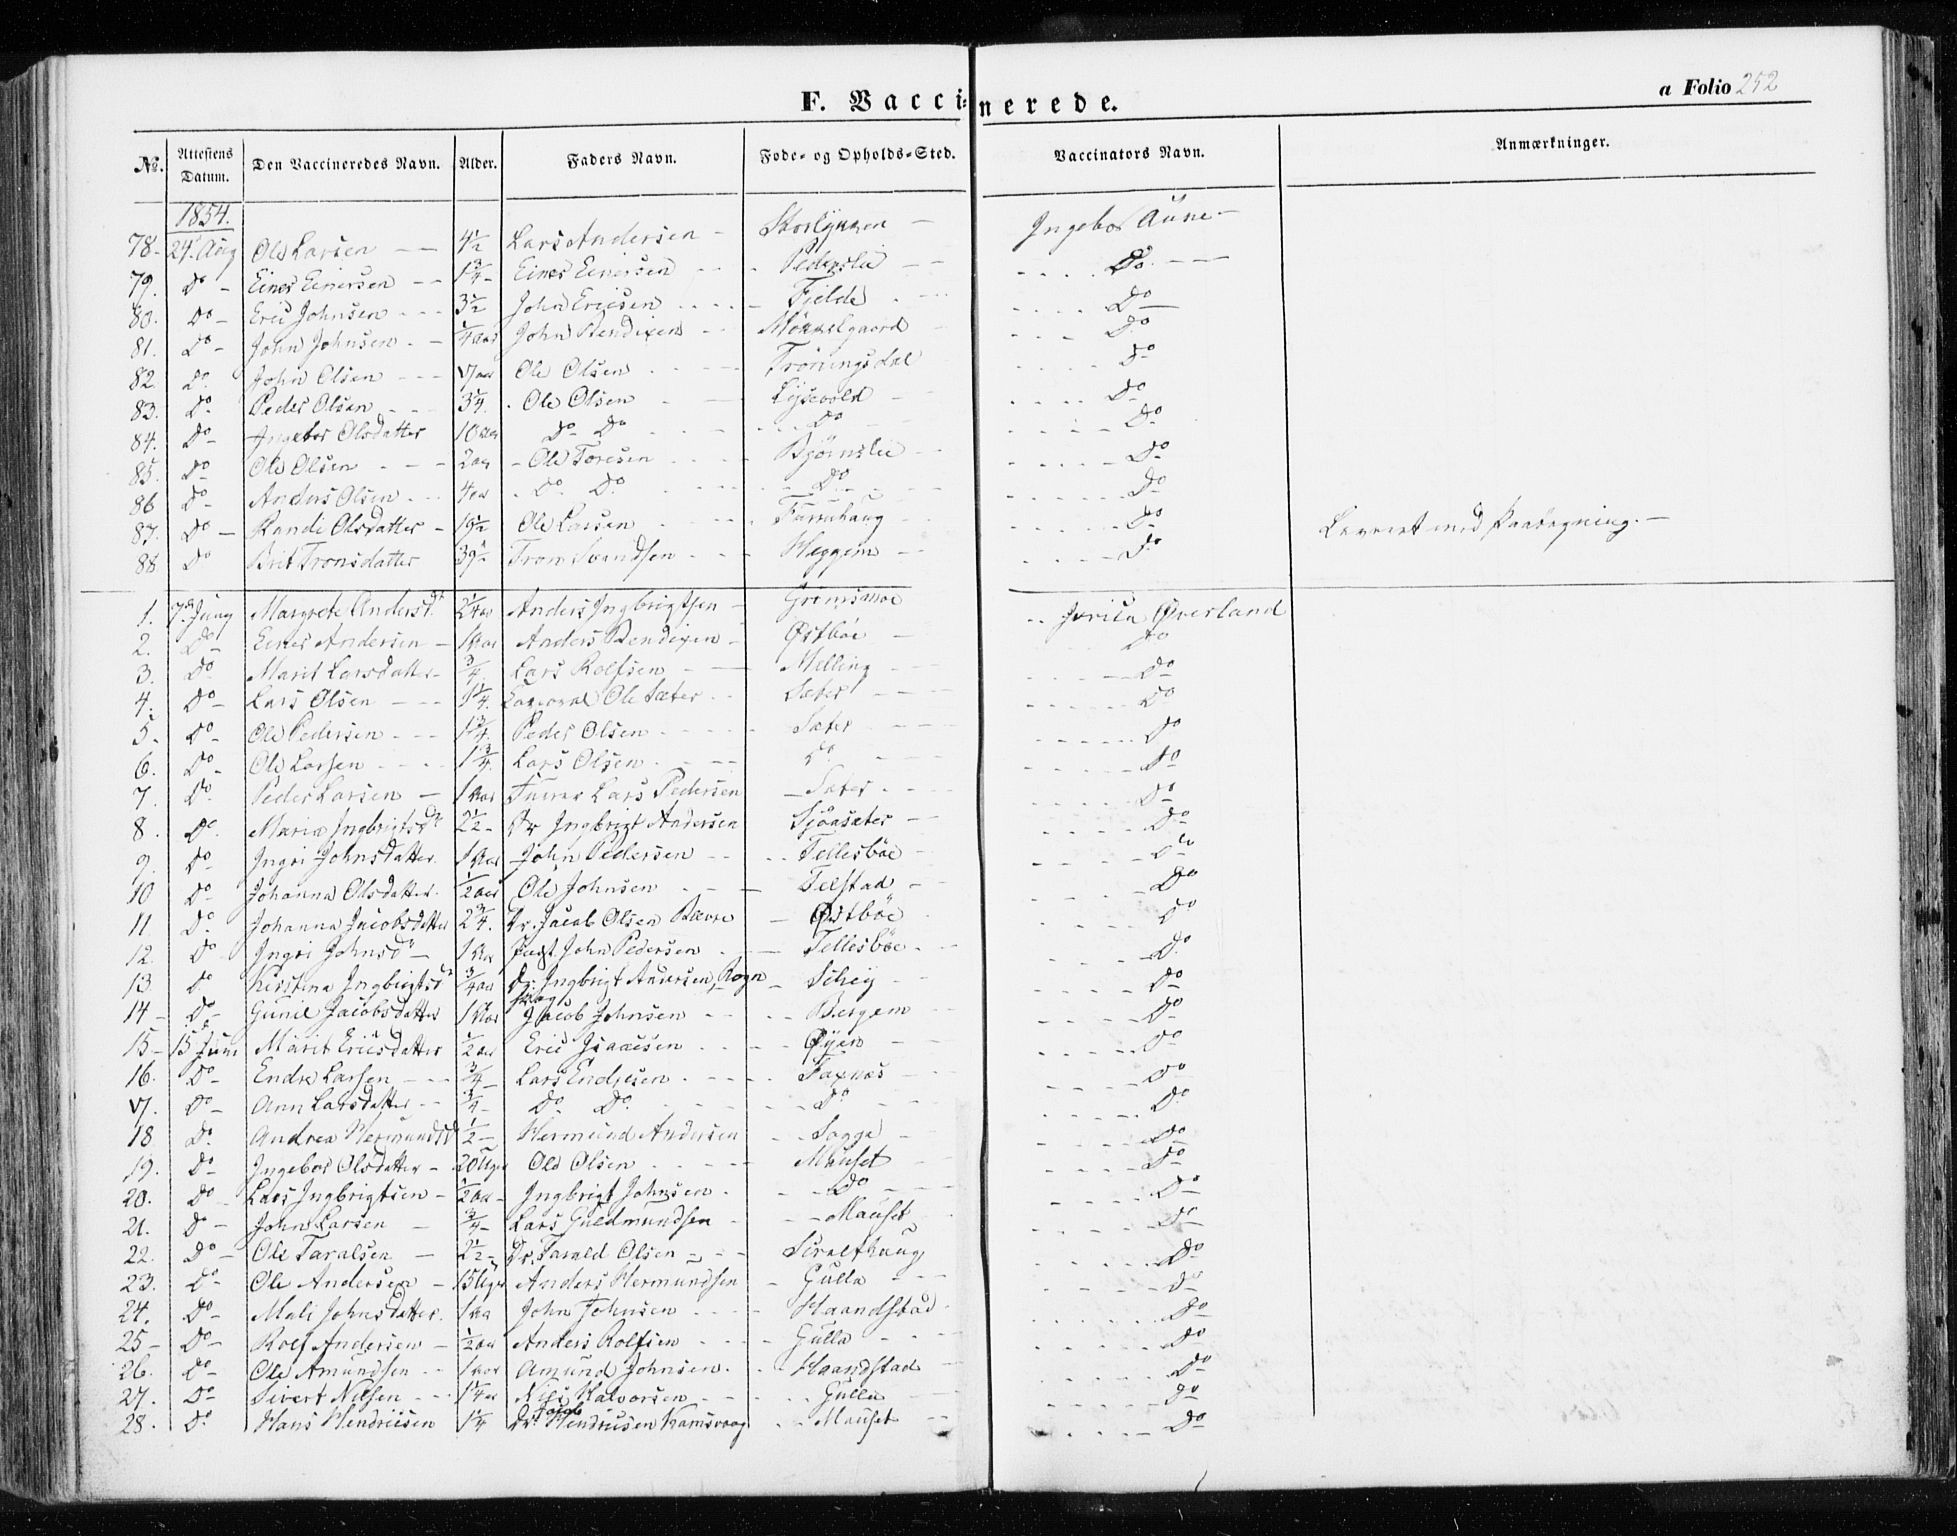 F. Vaccinerede.
a Folio 252
No. Attestens Datum. Den Vaccineredes Navn. Alder. Faders Navn. Føde- og Opholds-Sted. Vaccinators Navn. Anmærkninger.
1854.
78 - 24 Aug Ole Larsen - - 4½ Lars Andersen - - Ingebor Aune -
79. Do - Einer Einersen - - 1¾ - Einer Einersen - - - Pederslie - - Do -
80. Do - Eric Johnsen - - - 3½ John Ericsen - - - Fjelde - - Do
81. Do - John Johnsen - - ¼ aar John Bendixen - - Møkkelgaard - - Do
82. Do. John Olsen - - - 17 aar Ole Olsen - - - Trøningsdal - - Do
83. Do Peder Olsen - - 3¼. Ole Olsen - - Lysevold - - Do
84. Do Ingebor Olsdatter 10 aar Do Do - - Do - - Do
85. Do Ole Olsen - - - 2 aar - Ole Toresen - - - Bjørnslie - - Do
86 Do Anders Olsen - - 4 aar - Do Do - - Do - - Do
87. Do - Randi Olsdatter - 19½ Ole Larsen - - - Furruhaug - - Do
88 Do Brit Tronsdatter 39 - Tron Svendsen - - - Heggem - - Do Leveret med Paategning. -
1. 7de Juny Margrete Andersdr ¾ aar Anders Ingbrigtsen - - Jorild Øverland
2. Do Einer Andersen - 1 aar Anders Bendixen - Østbøe - Do
3. Do. Marit Larsdatter - ¾ Lars Rolfsen - - Melling - - Do
4. Do - Lars Olsen - - - ¼. Ole Sæter - - Sæter - - Do
5 - Do - Ole Pedersen - - - 1¾. Peder Olsen - - - Sæter - - Do
6. Do - Ole Larsen - - - 1¾. Lars Olsen - - - Do - - Do
7. Do. Peder Larsen - 1 aar Lars Pedersen - Sæter - - Do
8. Do Maria Ingbrigtsdr 2½ - Dr Ingbrigt Andersen Sjøasæter - - Do
9. Do Ingri Johnsdatter. 1 aar John Pedersen - - Tellesbøe - - Do
10 Do Johanna Olsdatter. ½ aar Ole Johnsen - - - Telstad - - Do
11. Do. Johanna Jacobsdatter 2¾. Dr. Jacob Olsen Bævre - Østbøe - - Do
12. Do Ingri Johnsdr - 1 aar John Pedersen - - Tellesbøe - - Do
13. Do Kirstina Ingbrigtsdr ¾ aar Dr. Ingbrigt Andersen, Rognskog - Schey - - Do
14 - Do - Gunil Jacobsdatter 1 aar Jacob Johnsen - - - Bergem - - Do
15 - 15 Juni Marit Ericsdatter ½ aar Eric Isaacsen - - - Øyen - - Do
16. Do - Endre Larsen - - - ¾ - Lars Endresen - - - Taxnæs - - Do
17. Do - Ann Larsdatter - - ¾ - Do Do - - Do - - Do
18 Do. Andrea Hermundsd ½ - Hermund Andersen - - Sogge - - Do
19. Do - Ingebor Olsdatter - 20 Uger Ole Olsen - - - Mauset - - Do
20. Do - Lars Ingbrigtsen - ½ aar - Ingbrigt Johnsen - - Do - - Do
21. Do - John Larsen - ¾ - Lars Guldmundsen - - Mauset - - Do
22. Do - Ole Taralsen - ½ - Dr. Tarald Olsen - - - - - Do
23. Do Ole Andersen - 15 Uger Anders Hermundsen - Gulla - - Do
24. Do - Mali Johnsdatter. 1 aar John Johnsen - - - Haandstad - Do
25 - Do - Rolf Andersen - ½ aar Anders Rolfsen - - - Gulla - - Do
26. Do Ole Amundsen - - 1 aar Amund Johnsen - - Haandstad - - Do
27. Do Sivert Nilsen - - 1¼ aar Nils Halvorsen - - - Gulla - - Do
28. Do Hans Hendricsen 1¼ Dr. Jacob Hendricsen Ramsvaag - - Mauset - - Do